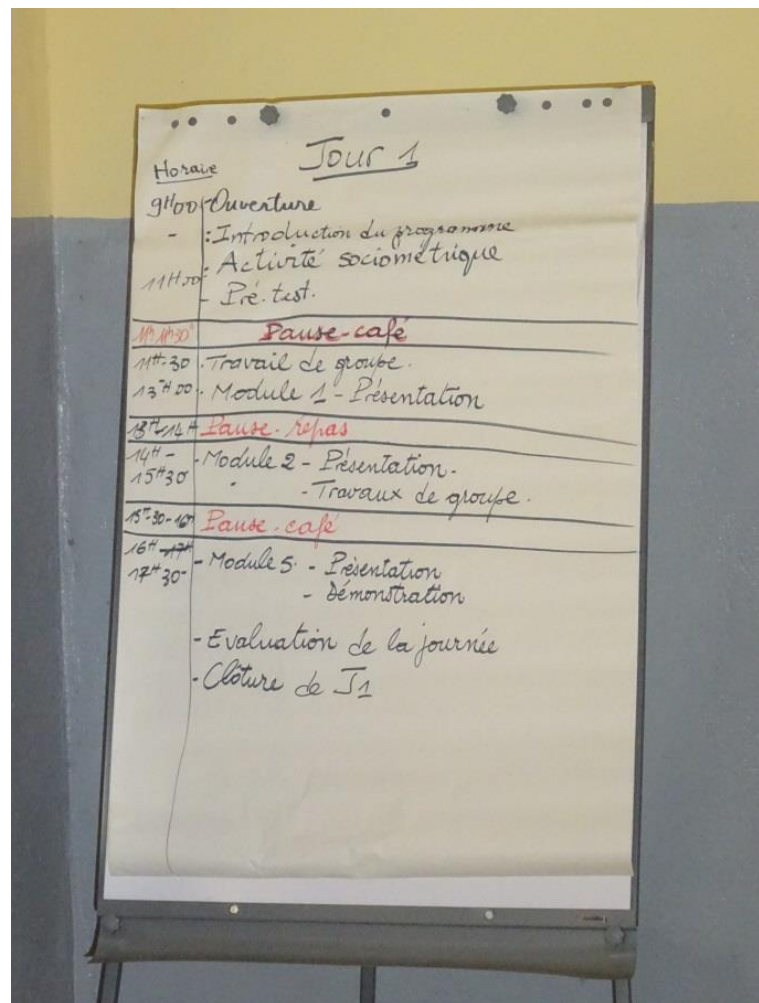 Jour 1
Horaire
9H00 - Ouverture
- : Introduction du programme
11H00 : Activité sociométrique
- Pré-test.
11H-11H30 Pause-café
11H-30 . Travail de groupe.
13H00 . Module 1 - Présentation
13H-14H Pause-repas
14H - - Module 2 - Présentation -
15H30 " - Travaux de groupe.
15H-30-16H Pause-café
16H 17H
17H30- - Module 5. - Présentation
- Démonstration
- Evaluation de la journée
- Clôture de J1